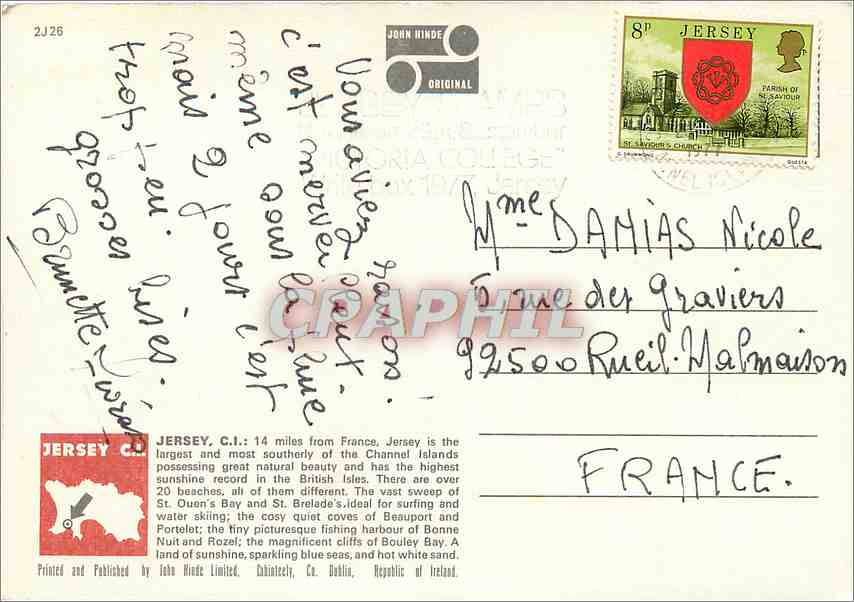 2J26
JOHN HINDE
ORIGINAL
8P JERSEY
PARISH OF
ST. SAVIOUR
ST SAVIOUR'S CHURCH
"VICTORIA COLLEGE"
1977 Jersey
Vous aviez raison.
c'est merveilleux
même sous la pluie
mais 2 jours c'est
trop peu. bises.
grosses
Brunette
Mme DAMIAS Nicole
5, rue des Graviers
92500 Rueil-Malmaison
FRANCE.
CPAPHIL
JERSEY C.I.
JERSEY, C.I.: 14 miles from France, Jersey is the
largest and most southerly of the Channel Islands
possessing great natural beauty and has the highest
sunshine record in the British Isles. There are over
20 beaches, all of them different. The vast sweep of
St. Ouen's Bay and St. Brelade's, ideal for surfing and
water skiing; the cosy quiet coves of Beauport and
Portelet; the tiny picturesque fishing harbour of Bonne
Nuit and Rozel; the magnificent cliffs of Bouley Bay. A
land of sunshine, sparkling blue seas, and hot white sand.
Printed and Published by John Hinde Limited, Cabinteely, Co. Dublin, Republic of Ireland.